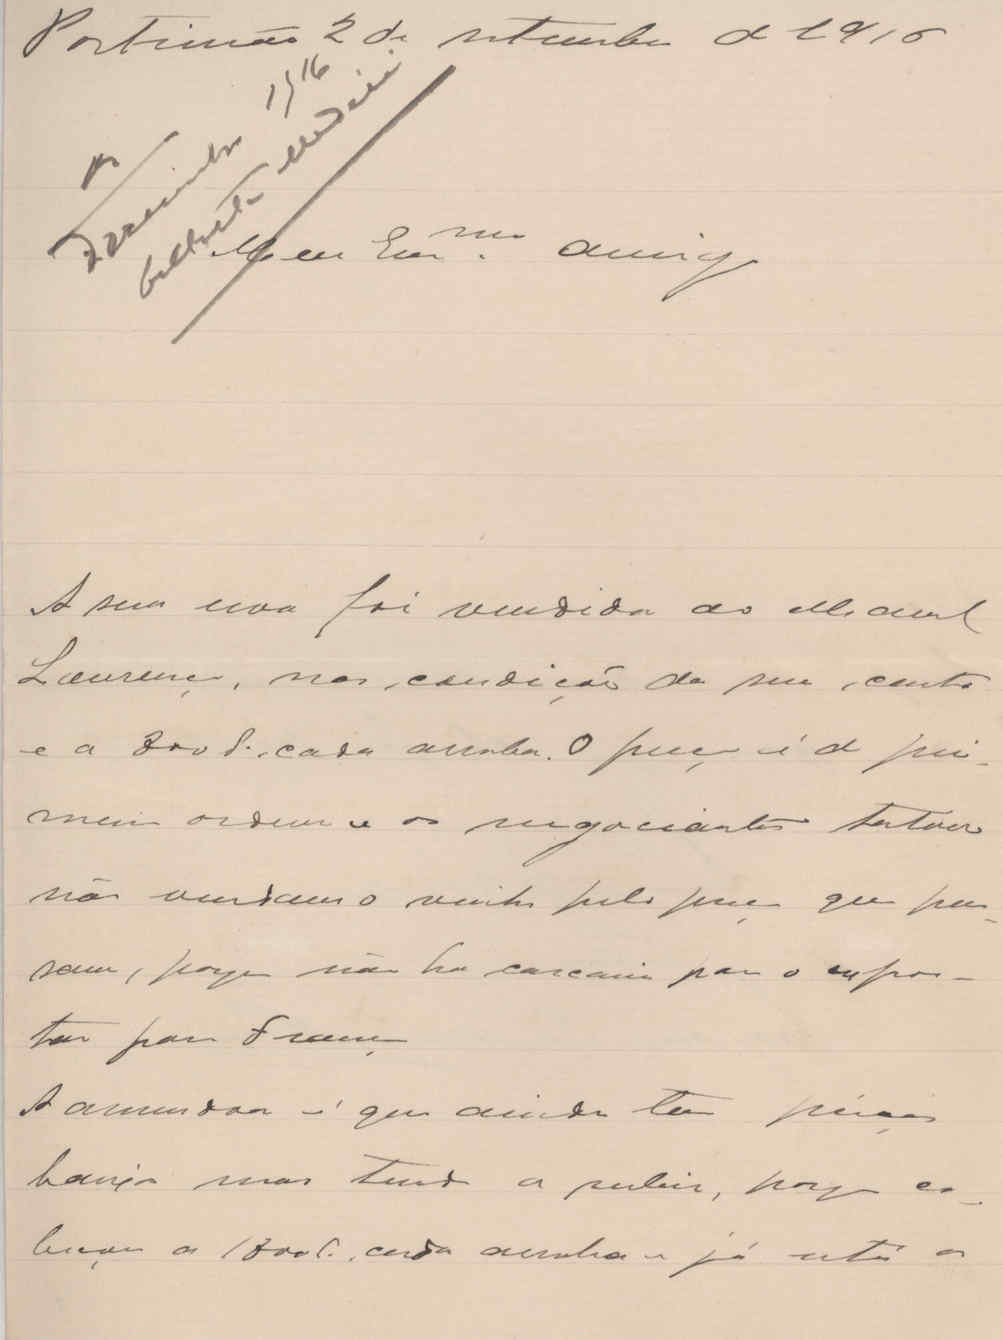 Portimão 2 de setembro de 1916
1916
Meu Exmo. amigo
A sua uva foi vendida ao Manuel
Lourenço, nas condição da sua conta
e a 800 rs. cada arroba. O preço é de pri-
meira ordem e os negociantes
não vendam o vinho pelo preço que pen-
sam, porque não ha cascaria para o expor-
tar para França
A amendoa é que ainda tem preço
baixo mas tende a subir, porque co-
meçou a 1800 rs. cada arroba e já está a